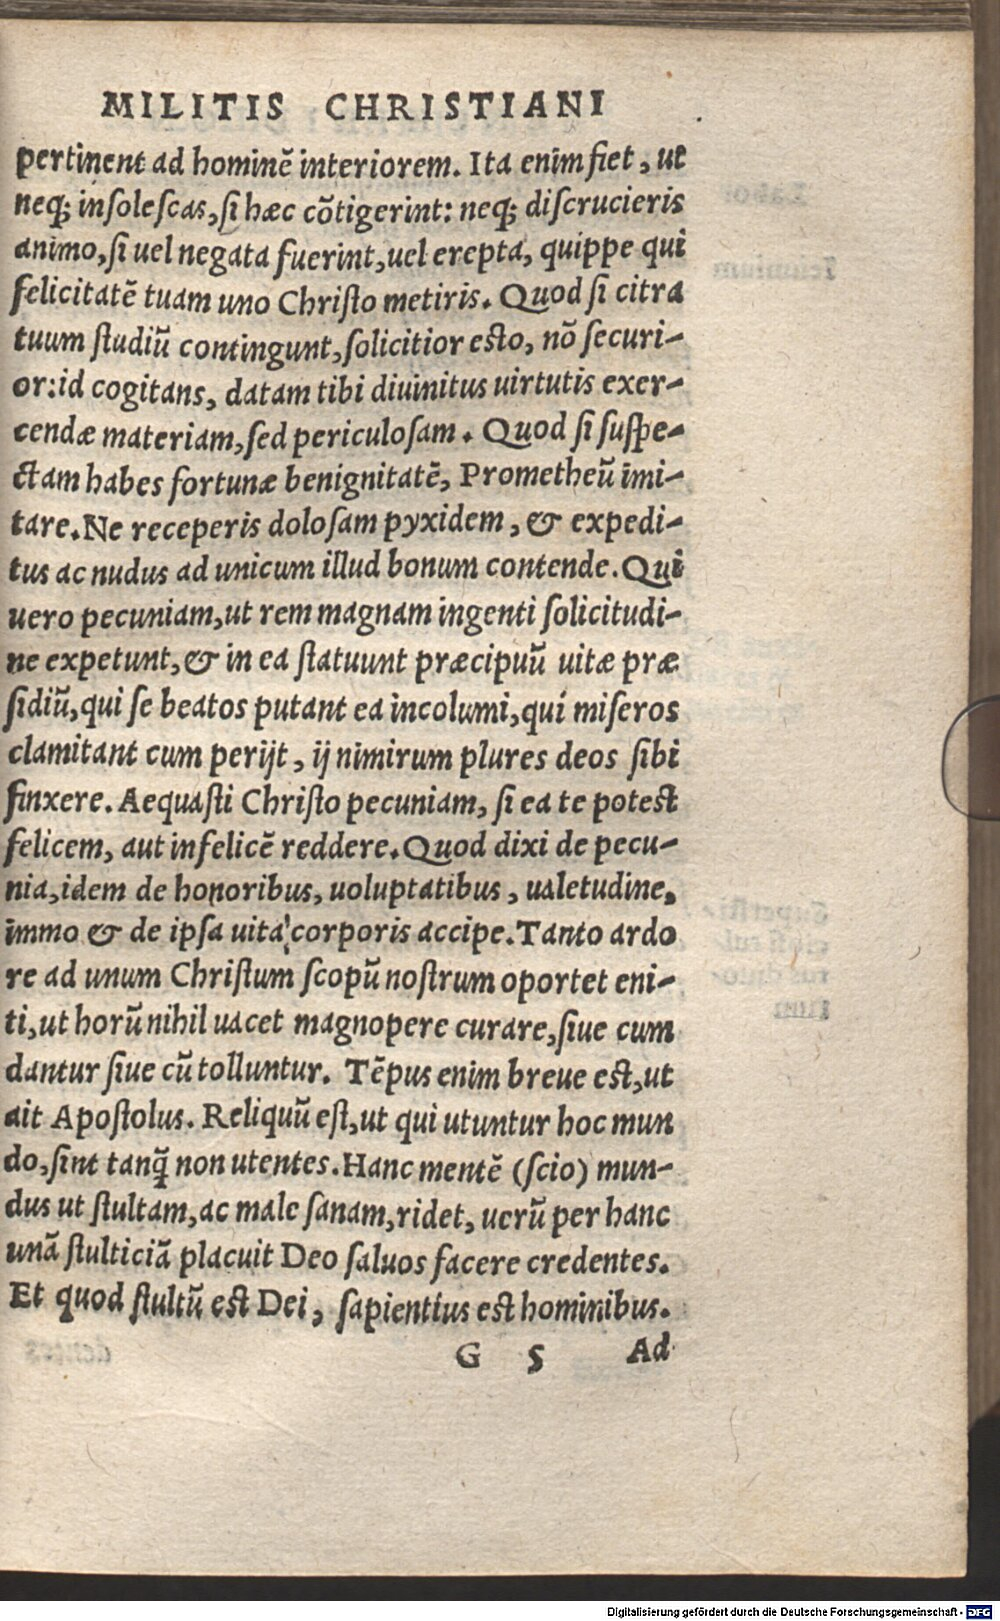 MILITIS CHRISTIANI
pertinent ad hominē interiorem. Ita enim fiet, ut
neq; insolescas, si hæc cōtigerint: neq; discrucieris
animo, si uel negata fuerint, uel erepta, quippe qui
felicitatē tuam uno Christo metiris. Quod si citra
tuum studiū contingunt, solicitior esto, nō securi-
or: id cogitans, datam tibi diuinitus uirtutis exer-
cendæ materiam, sed periculosam. Quod si suspe-
ctam habes fortunæ benignitatē, Prometheū imi-
tare. Ne receperis dolosam pyxidem, & expedi-
tus ac nudus ad unicum illud bonum contende. Qui
uero pecuniam, ut rem magnam ingenti solicitudi-
ne expetunt, & in ea statuunt præcipuū uitæ præ
sidiū, qui se beatos putant ea incolumi, qui miseros
clamitant cum perijt, ij nimirum plures deos sibi
finxere. Aequasti Christo pecuniam, si ea te potest
felicem, aut infelicē reddere. Quod dixi de pecu-
nia, idem de honoribus, uoluptatibus, ualetudine,
immo & de ipsa uita corporis accipe. Tanto ardo
re ad unum Christum scopū nostrum oportet eni-
ti, ut horū nihil uacet magnopere curare, siue cum
dantur siue cū tolluntur. Tēpus enim breue est, ut
ait Apostolus. Reliquū est, ut qui utuntur hoc mun
do, sint tanq̃ non utentes. Hanc mentē (scio) mun-
dus ut stultam, ac male sanam, ridet, uerū per hanc
unā stulticiā placuit Deo saluos facere credentes.
Et quod stultū est Dei, sapientius est hominibus.
G 5 Ad
Digitalisierung gefördert durch die Deutsche Forschungsgemeinschaft - DFG